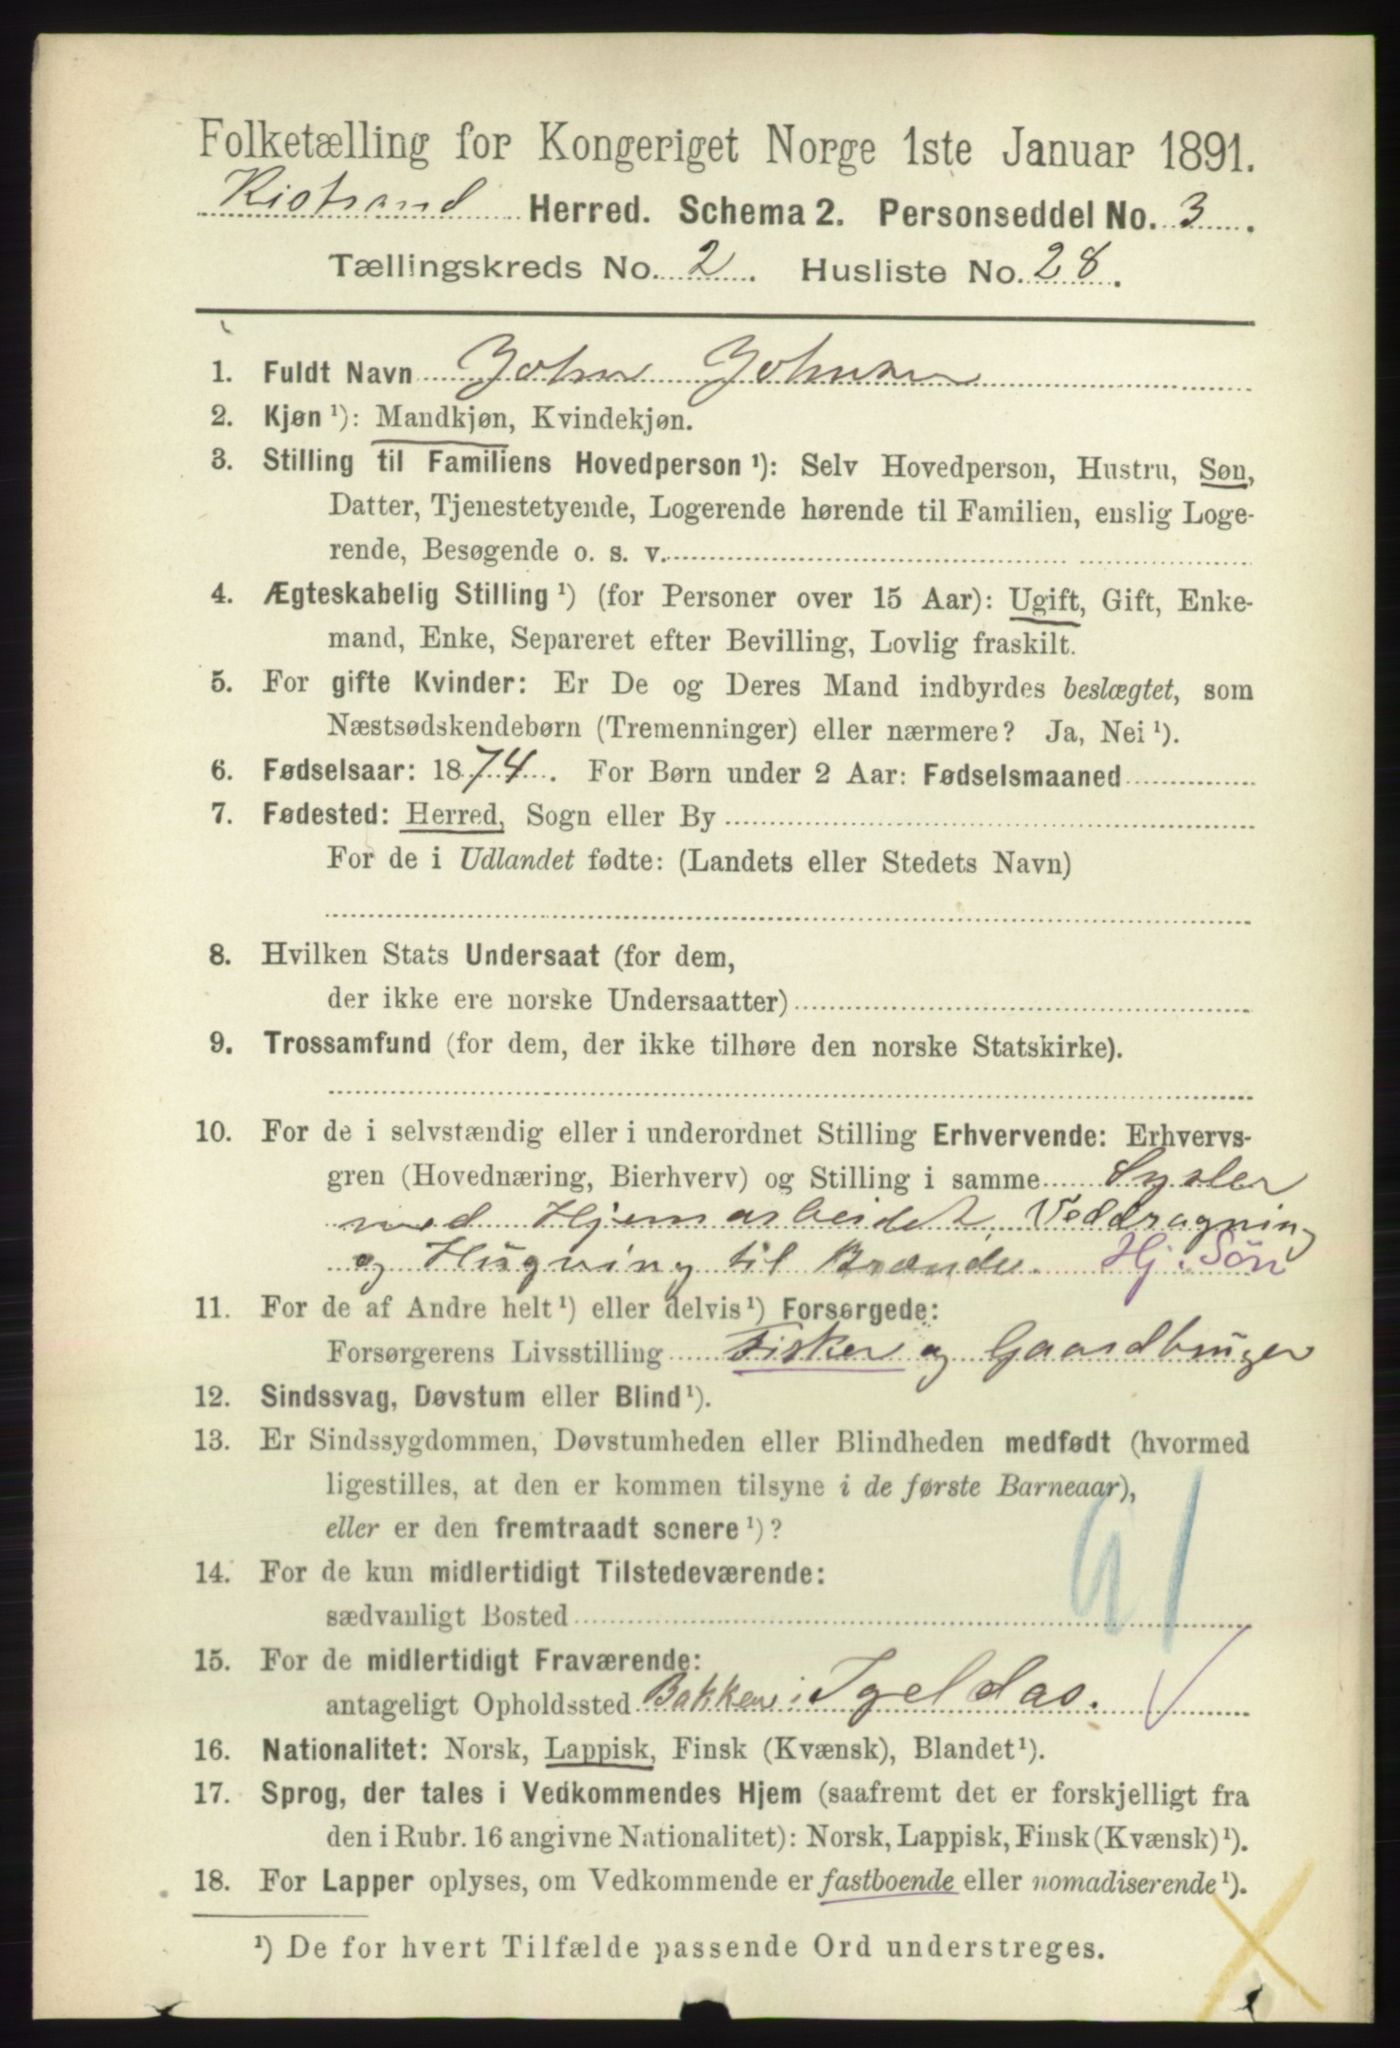 Folketælling for Kongeriget Norge 1ste Januar 1891.
Kistrand Herred. Schema 2. Personseddel No. 3.
Tællingskreds No. 2. Husliste No. 28.
1. Fuldt Navn John Johnsen
2. Kjøn ¹): Mandkjøn, Kvindekjøn.
3. Stilling til Familiens Hovedperson ¹): Selv Hovedperson, Hustru, Søn,
Datter, Tjenestetyende, Logerende hørende til Familien, enslig Loge-
rende, Besøgende o. s. v.
4. Ægteskabelig Stilling ¹) (for Personer over 15 Aar): Ugift, Gift, Enke-
mand, Enke, Separeret efter Bevilling, Lovlig fraskilt.
5. For gifte Kvinder: Er De og Deres Mand indbyrdes beslægtet, som
Næstsødskendebørn (Tremenninger) eller nærmere? Ja, Nei ¹).
6. Fødselsaar: 1874. For Børn under 2 Aar: Fødselsmaaned
7. Fødested: Herred, Sogn eller By
For de i Udlandet fødte: (Landets eller Stedets Navn)
8. Hvilken Stats Undersaat (for dem,
der ikke ere norske Undersaatter)
9. Trossamfund (for dem, der ikke tilhøre den norske Statskirke).
10. For de i selvstændig eller i underordnet Stilling Erhvervende: Erhvervs-
gren (Hovednæring, Bierhverv) og Stilling i samme Sysler
med Hjemarbeidet, Veddragning
og Hugning til Brænde. Hj. Søn
11. For de af Andre helt ¹) eller delvis ¹) Forsørgede:
Forsørgerens Livsstilling Fisker og Gaardbruger
12. Sindssvag, Døvstum eller Blind ¹).
13. Er Sindssygdommen, Døvstumheden eller Blindheden medfødt (hvormed
ligestilles, at den er kommen tilsyne i de første Barneaar),
eller er den fremtraadt senere ¹)?
14. For de kun midlertidigt Tilstedeværende:
sædvanligt Bosted
15. For de midlertidigt Fraværende:
antageligt Opholdssted Bakken i Igeldas.
16. Nationalitet: Norsk, Lappisk, Finsk (Kvænsk), Blandet ¹).
17. Sprog, der tales i Vedkommendes Hjem (saafremt det er forskjelligt fra
den i Rubr. 16 angivne Nationalitet): Norsk, Lappisk, Finsk (Kvænsk) ¹).
18. For Lapper oplyses, om Vedkommende er fastboende eller nomadiserende ¹).
¹) De for hvert Tilfælde passende Ord understreges.